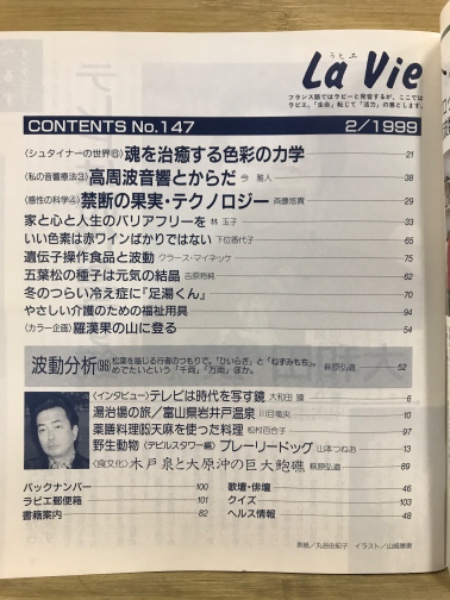 ラヒエ
La Vie
フランス語ではラビーと発音するが、ここでは
ラビエ。「生命」転じて「活力」の意とします。
CONTENTS No.147 2/1999
〈シュタイナーの世界⑥〉魂を治癒する色彩の力学 21
〈私の音響療法③〉高周波音響とからだ 今 雅人 38
〈感性の科学④〉禁断の果実・テクノロジー 斉藤悠貴 29
家と心と人生のバリアフリーを 林 玉子 33
いい色素は赤ワインばかりではない 下位香代子 65
遺伝子操作食品と波動 クラース・マイネッケ 75
五葉松の種子は元気の結晶 62
冬のつらい冷え症に『足湯くん』 70
やさしい介護のための福祉用具 94
〈カラー企画〉羅漢果の山に登る 54
波動分析(96) 松葉を噛じる行者のつもりで。「ひいらぎ」と「ねずみもち」。
めでたいという「千両」「万両」ほか。 萩原弘道 52
〈インタビュー〉テレビは時代を写す鏡 大和田 獏 6
湯治場の旅／富山県岩井戸温泉 川田竜央 10
薬膳料理 天麻を使った料理 松村百合子 97
野生動物〈デビルスタワー編〉プレーリードッグ 山本つねお 13
〈食文化〉木戸泉と大原沖の巨大鮑礁 萩原弘道 89
バックナンバー 100
ラビエ郵便箱 101
書籍案内 82
歌壇・俳壇 46
クイズ 103
ヘルス情報 48
表紙／丸谷由紀子 イラスト／山崎勝康